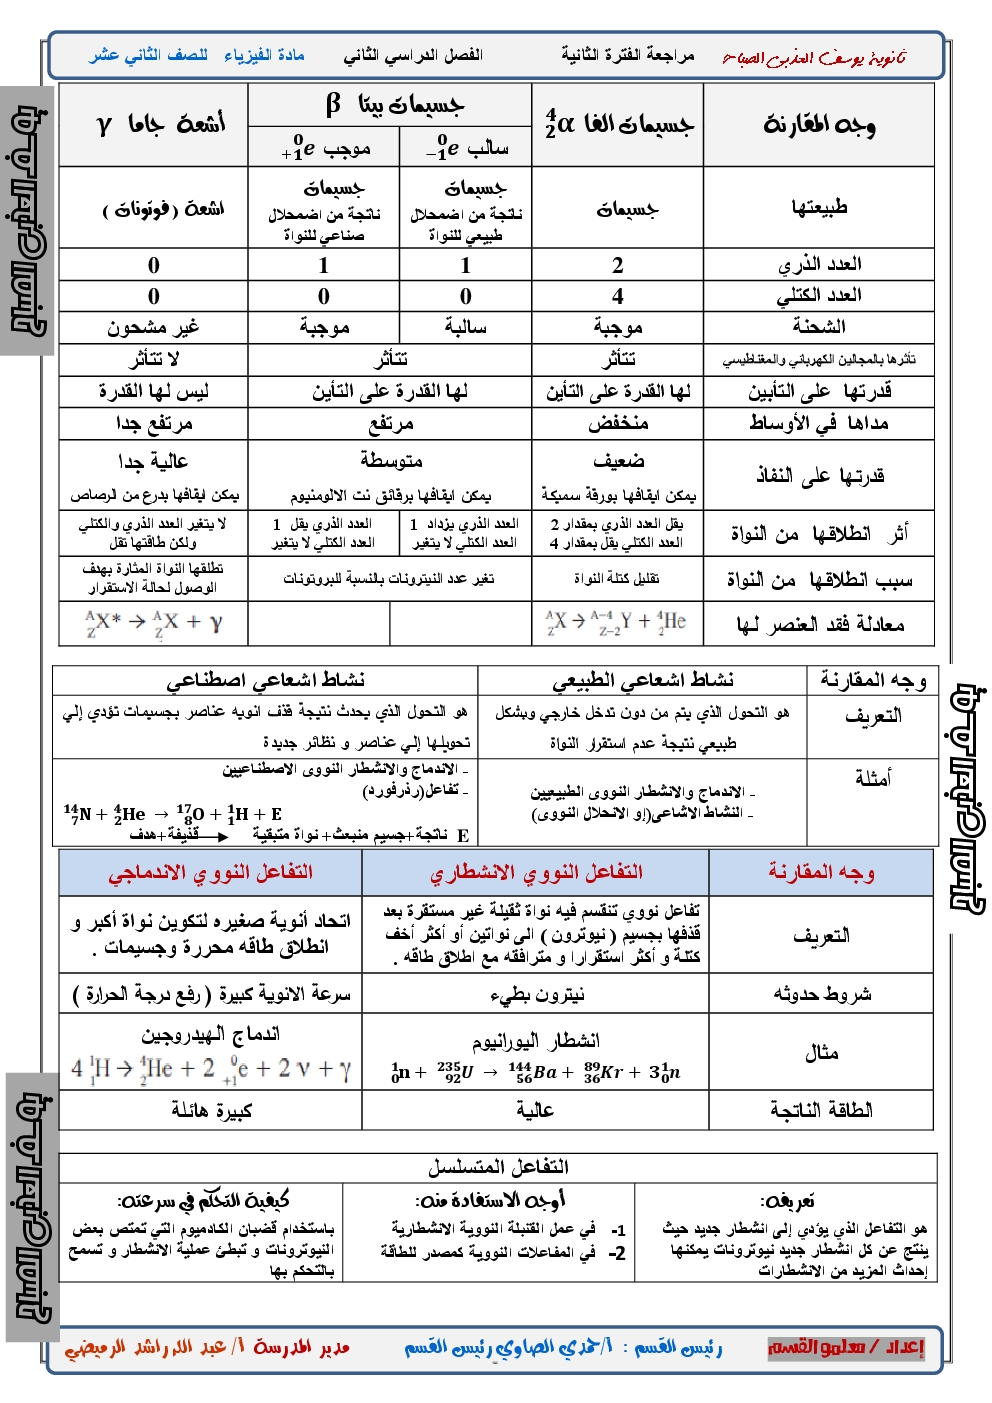 ثانوية يوسف العذبي الصباح مراجعة الفترة الثانية الفصل الدراسي الثاني مادة الفيزياء للصف الثاني عشر
وجه المقارنة جسيمات الفا ⁴₂α جسيمات بيتا β أشعة جاما γ
سالب ⁰₋₁e موجب ⁰₊₁e
طبيعتها جسيمات جسيمات ناتجة من اضمحلال طبيعي للنواة جسيمات ناتجة من اضمحلال صناعي للنواة اشعة (فوتونات)
العدد الذري 2 1 1 0
العدد الكتلي 4 0 0 0
الشحنة موجبة سالبة موجبة غير مشحون
تأثرها بالمجالين الكهربائي والمغناطيسي تتأثر تتأثر لا تتأثر
قدرتها على التأيين لها القدرة على التأين لها القدرة على التأين ليس لها القدرة
مداها في الأوساط منخفض مرتفع مرتفع جدا
قدرتها على النفاذ ضعيف متوسطة عالية جدا
يمكن ايقافها بورقة سميكة يمكن ايقافها برقائق نت الالومنيوم يمكن ايقافها بدرع من الرصاص
أثر انطلاقها من النواة يقل العدد الذري بمقدار 2 العدد الذري يزداد 1 العدد الذري يقل 1 لا يتغير العدد الذري والكتلي
العدد الكتلي يقل بمقدار 4 العدد الكتلي لا يتغير العدد الكتلي لا يتغير ولكن طاقتها تقل
سبب انطلاقها من النواة تقليل كتلة النواة تغير عدد النيترونات بالنسبة للبروتونات تطلقها النواة المثارة بهدف
الوصول لحالة الاستقرار
معادلة فقد العنصر لها ᴬ_Z X → ᴬ⁻⁴_Z₋₂ Y + ⁴₂He ᴬ_Z X* → ᴬ_Z X + γ
وجه المقارنة نشاط اشعاعي الطبيعي نشاط اشعاعي اصطناعي
التعريف هو التحول الذي يتم من دون تدخل خارجي وبشكل هو التحول الذي يحدث نتيجة قذف انويه عناصر بجسيمات تؤدي إلي
طبيعي نتيجة عدم استقرار النواة تحويلها إلي عناصر و نظائر جديدة
أمثلة
- الاندماج والانشطار النووى الطبيعيين
- النشاط الاشاعى(إو الانحلال النووى)
- الاندماج والانشطار النووى الاصطناعيين
- تفاعل(رذرفورد)
¹⁴₇N + ⁴₂He → ¹⁷₈O + ¹₁H + E
E ناتجة+جسيم منبعث+ نواة متبقية ⟶ قذيفة+هدف
وجه المقارنة التفاعل النووي الانشطاري التفاعل النووي الاندماجي
التعريف
تفاعل نووي تنقسم فيه نواة ثقيلة غير مستقرة بعد
قذفها بجسيم ( نيوترون ) الى نواتين أو أكثر أخف
كتلة و أكثر استقرارا و مترافقه مع اطلاق طاقه .
اتحاد أنوية صغيره لتكوين نواة أكبر و
انطلاق طاقه محررة وجسيمات .
شروط حدوثه نيترون بطيء سرعة الانوية كبيرة ( رفع درجة الحرارة )
مثال انشطار اليورانيوم اندماج الهيدروجين
¹₀n + ²³⁵₉₂U → ¹⁴⁴₅₆Ba + ⁸⁹₃₆Kr + 3¹₀n 4 ¹₁H → ⁴₂He + 2 ⁰₊₁e + 2 ν + γ
الطاقة الناتجة عالية كبيرة هائلة
التفاعل المتسلسل
تعريفه:
هو التفاعل الذي يؤدي إلى انشطار جديد حيث
ينتج عن كل انشطار جديد نيوترونات يمكنها
إحداث المزيد من الانشطارات
أوجه الاستفادة منه:
1- في عمل القنبلة النووية الانشطارية
2- في المفاعلات النووية كمصدر للطاقة
كيفية التحكم في سرعته:
باستخدام قضبان الكادميوم التي تمتص بعض
النيوترونات و تبطئ عملية الانشطار و تسمح
بالتحكم بها
إعداد / معلمو القسم رئيس القسم : أ/حمدي الصاوي رئيس القسم مدير المدرسة أ/ عبد الله راشد الرميضي